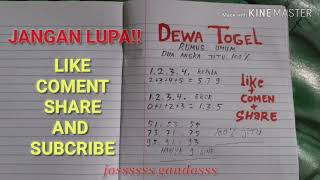 Made with KINEMASTER
JANGAN LUPA!!
LIKE
COMENT
SHARE
AND
SUBCRIBE
DEWA TOGEL
RUMUS UMUM
DUA ANGKA JITU 100%
1.2.3.4. KEPALA
2+3+4+5 = 5.7.9.
1.2.3.4. EKOR
0+1+2+3 = 1.3.5
51. 53. 55
73. 71. 75
95. 91. 93
100% JITU
HANYA 9 LINE
Like
+
COMEN
+
SHARE
jossssss gandosss